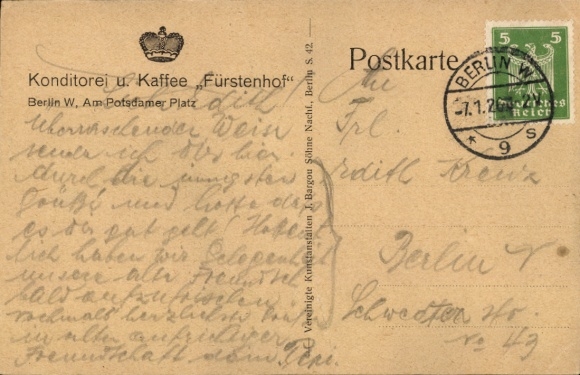 Konditorei u. Kaffee „Fürstenhof“
Berlin W, Am Potsdamer Platz
L. Edith
Überraschender Weise
sende ich Dir hier
durch die innigsten
Grüße und hoffe das
es Dir gut geht. Hoffent
lich haben wir Gelegenheit
unsere alte Freundsch
bald aufzufrischen
nochmals herzlichste
in alter aufrichtiger
Freundschaft dein
Vereinigte Kunstanstalten J. Bargou Söhne Nachf., Berlin S. 42
Postkarte
An
Frl.
Edith Kreuz
Berlin N
Schwedter Str.
No 43
5 5
Deutsches
Reich
BERLIN W
7.1.2
* 9 s